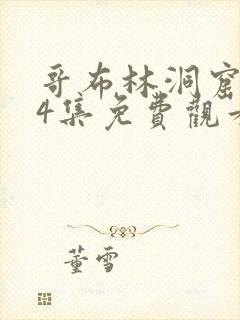 哥布林洞窟
4集免費觀看
董雪